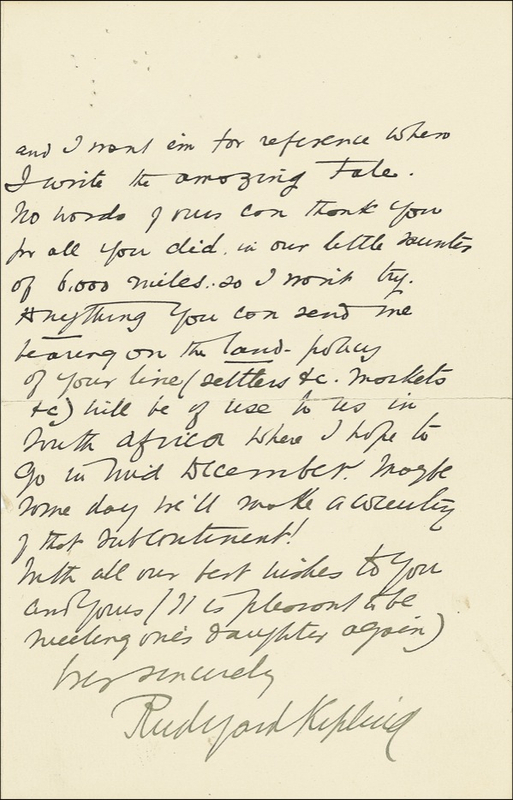 and I want 'em for reference when
I write the amazing Tale.
No words of ours can thank you
for all you did. in our little saunter
of 6.000 miles.. so I won't try.
Anything you can send me
bearing on the land- policy
of your line (settlers &c. markets
&c) will be of use to us in
South Africa where I hope to
go in mid December. Maybe
some day we'll make a country
of that subcontinent!
With all our best wishes to you
and yours (It is pleasant to be
meeting one's daughter again)
Ever sincerely
Rudyard Kipling